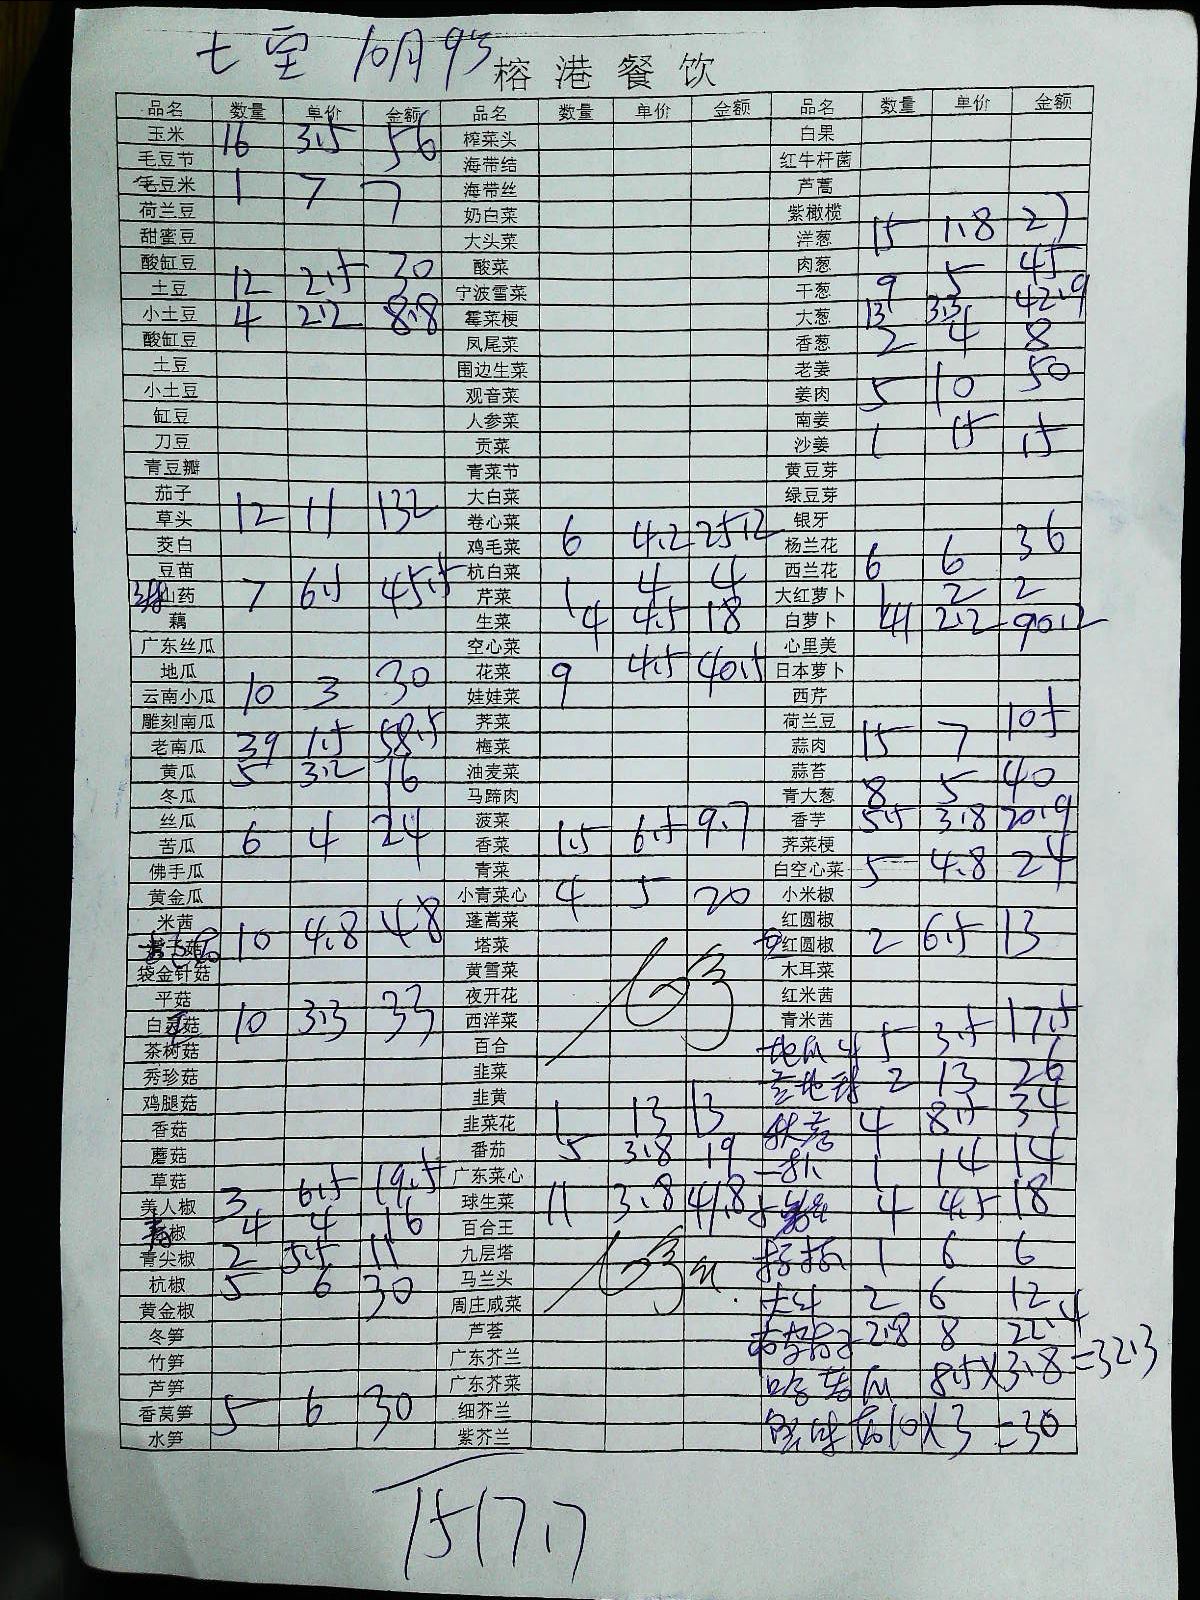 七宝 10月9号
榕港餐饮
品名 数量 单价 金额 品名 数量 单价 金额 品名 数量 单价 金额
玉米 16 3.5 56 榨菜头 白果
毛豆节 海带结 红牛杆菌
毛豆米 1 7 7 海带丝 芦蒿
荷兰豆 奶白菜 紫橄榄
甜蜜豆 大头菜 洋葱 15 1.8 27
酸缸豆 酸菜 肉葱
土豆 12 2.5 30 宁波雪菜 干葱 9 5 45
小土豆 4 2.2 8.8 霉菜梗 大葱 13 3.3 42.9
酸缸豆 凤尾菜 香葱 2 4 8
土豆 围边生菜 老姜
小土豆 观音菜 姜肉 5 10 50
缸豆 人参菜 南姜
刀豆 贡菜 沙姜 1 15 15
青豆瓣 青菜节 黄豆芽
茄子 大白菜 绿豆芽
草头 12 11 132 卷心菜 银牙
茭白 鸡毛菜 6 4.2 25.2 杨兰花
豆苗 杭白菜 西兰花 6 6 36
山药 7 6.5 45.5 芹菜 1 4 4 大红萝卜 1 2 2
藕 生菜 4 4.5 18 白萝卜 41 2.2 90.2
广东丝瓜 空心菜 心里美
地瓜 花菜 9 4.5 40.5 日本萝卜
云南小瓜 10 3 30 娃娃菜 西芹
雕刻南瓜 荠菜 荷兰豆
老南瓜 39 1.5 58.5 梅菜 蒜肉 15 7 105
黄瓜 5 3.2 16 油麦菜 蒜苔
冬瓜 马蹄肉 青大葱 8 5 40
丝瓜 菠菜 香芋 5.5 3.8 20.9
苦瓜 6 4 24 香菜 1.5 6.5 9.7 荠菜梗
佛手瓜 青菜 白空心菜 5 4.8 24
黄金瓜 小青菜心 4 5 20 小米椒
米茜 蓬蒿菜 红圆椒
菇 10 4.8 48 塔菜 红圆椒 2 6.5 13
袋金针菇 黄雪菜 木耳菜
平菇 夜开花 红米茜
白玉菇 10 3.3 33 西洋菜 青米茜
茶树菇 百合 地瓜 5 3.5 17.5
秀珍菇 韭菜 2 13 26
鸡腿菇 韭黄
香菇 韭菜花 1 13 13 4 8.5 34
蘑菇 番茄 5 3.8 19 1 14 14
草菇 广东菜心
美人椒 3 6.5 19.5 球生菜 11 3.8 41.8 4 4.5 18
青椒 4 4 16 百合王
青尖椒 2 5.5 11 九层塔 1 6 6
杭椒 5 6 30 马兰头
黄金椒 周庄咸菜 2 6 12
冬笋 芦荟 2.8 8 22.4
竹笋 广东芥兰
芦笋 广东芥菜 哈密瓜 8.5×3.8=32.3
香莴笋 5 6 30 细芥兰
水笋 紫芥兰 10×3=30
1517.7